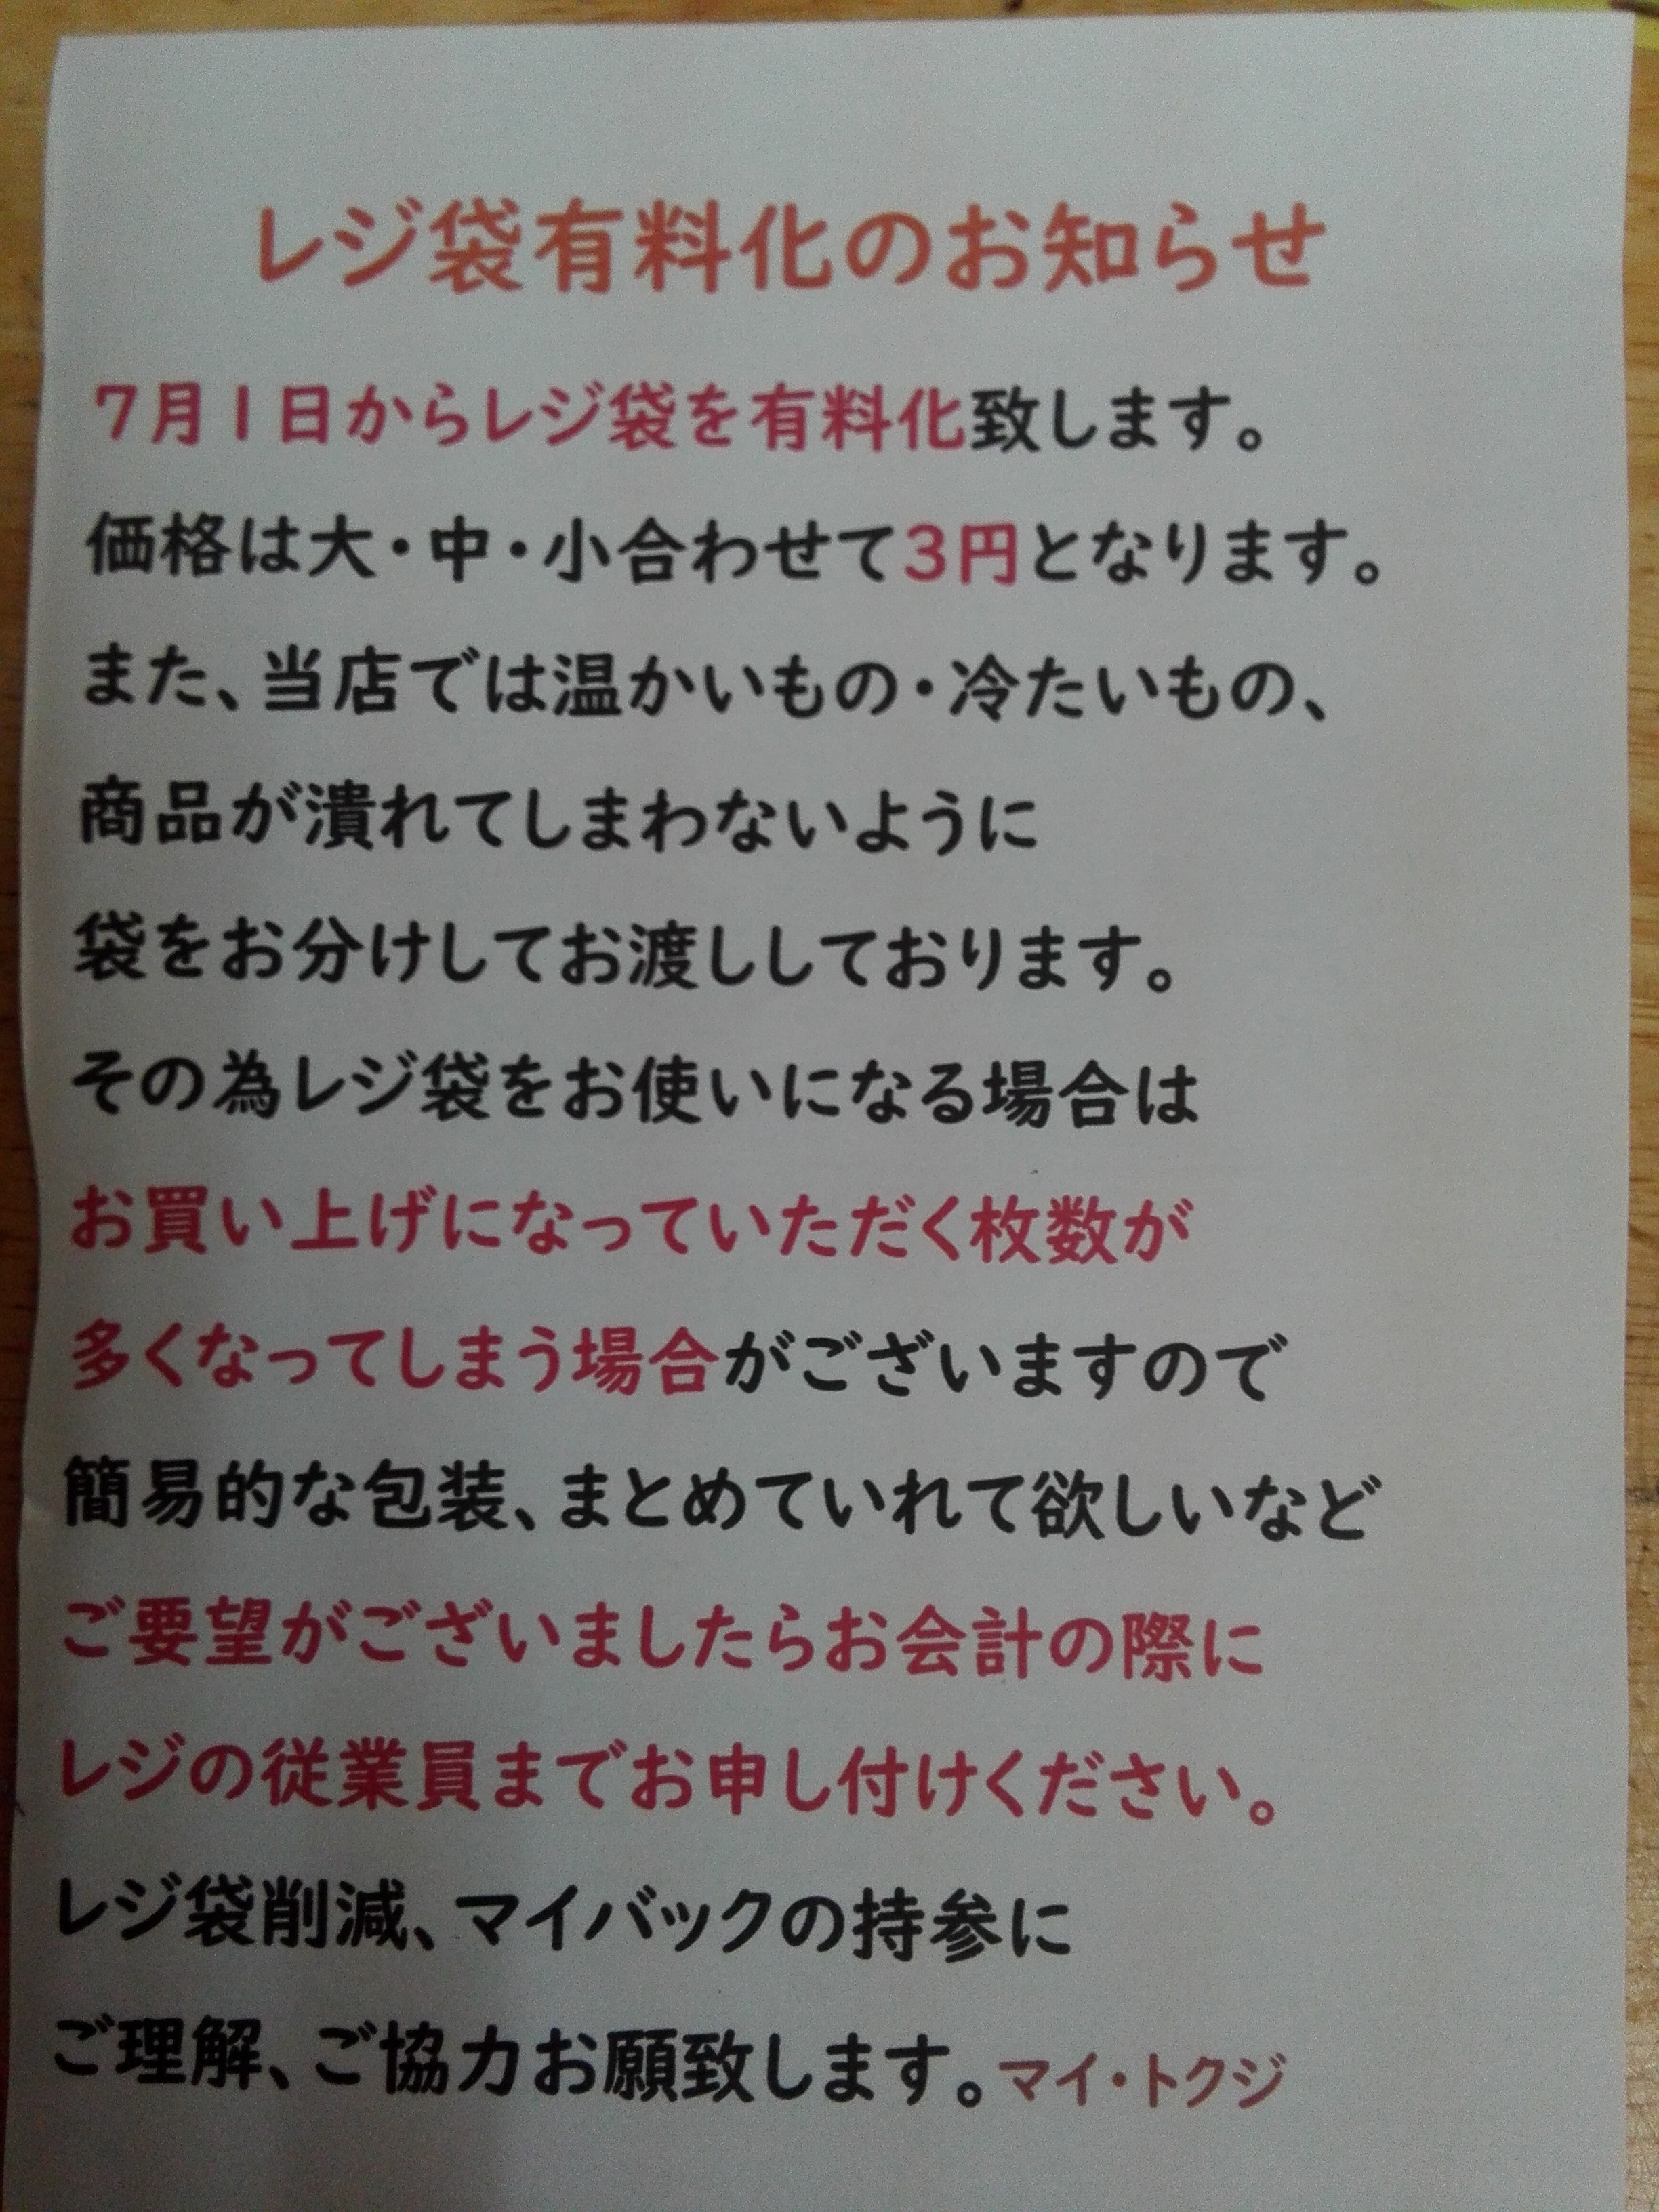 レジ袋有料化のお知らせ
7月1日からレジ袋を有料化致します。
価格は大・中・小合わせて3円となります。
また、当店では温かいもの・冷たいもの、
商品が潰れてしまわないように
袋をお分けしてお渡ししております。
その為レジ袋をお使いになる場合は
お買い上げになっていただく枚数が
多くなってしまう場合がございますので
簡易的な包装、まとめていれて欲しいなど
ご要望がございましたらお会計の際に
レジの従業員までお申し付けください。
レジ袋削減、マイバックの持参に
ご理解、ご協力お願致します。マイ・トクジ